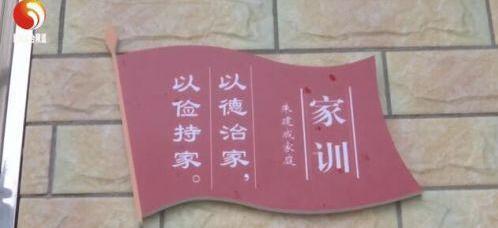 家训
朱建成家庭
以德治家，
以俭持家。